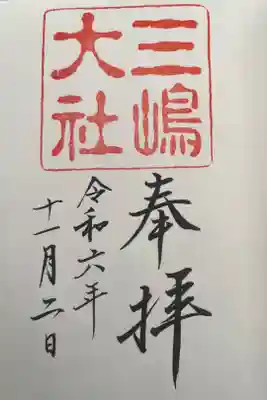 三嶋
大社
奉拝
令和六年
十一月二日